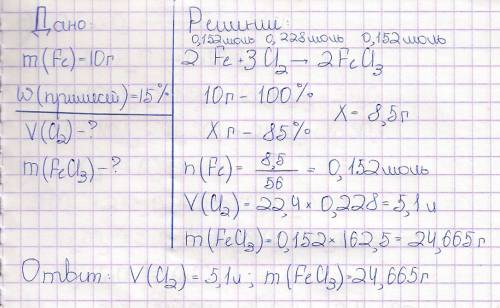 Дано:
m(Fe)=10г
w(примесей)=15%
V(Cl₂)-?
m(FeCl₃)-?
Решение:
0,152моль 0,228моль 0,152моль
2Fe+3Cl₂→2FeCl₃
10г – 100%
X=8,5г
Xг – 85%
n(Fe)= 8,5/56 = 0,152моль
V(Cl₂)=22,4×0,228=5,1л
m(FeCl₃)=0,152×162,5=24,665г
Ответ: V(Cl₂)=5,1л; m(FeCl₃)=24,665г